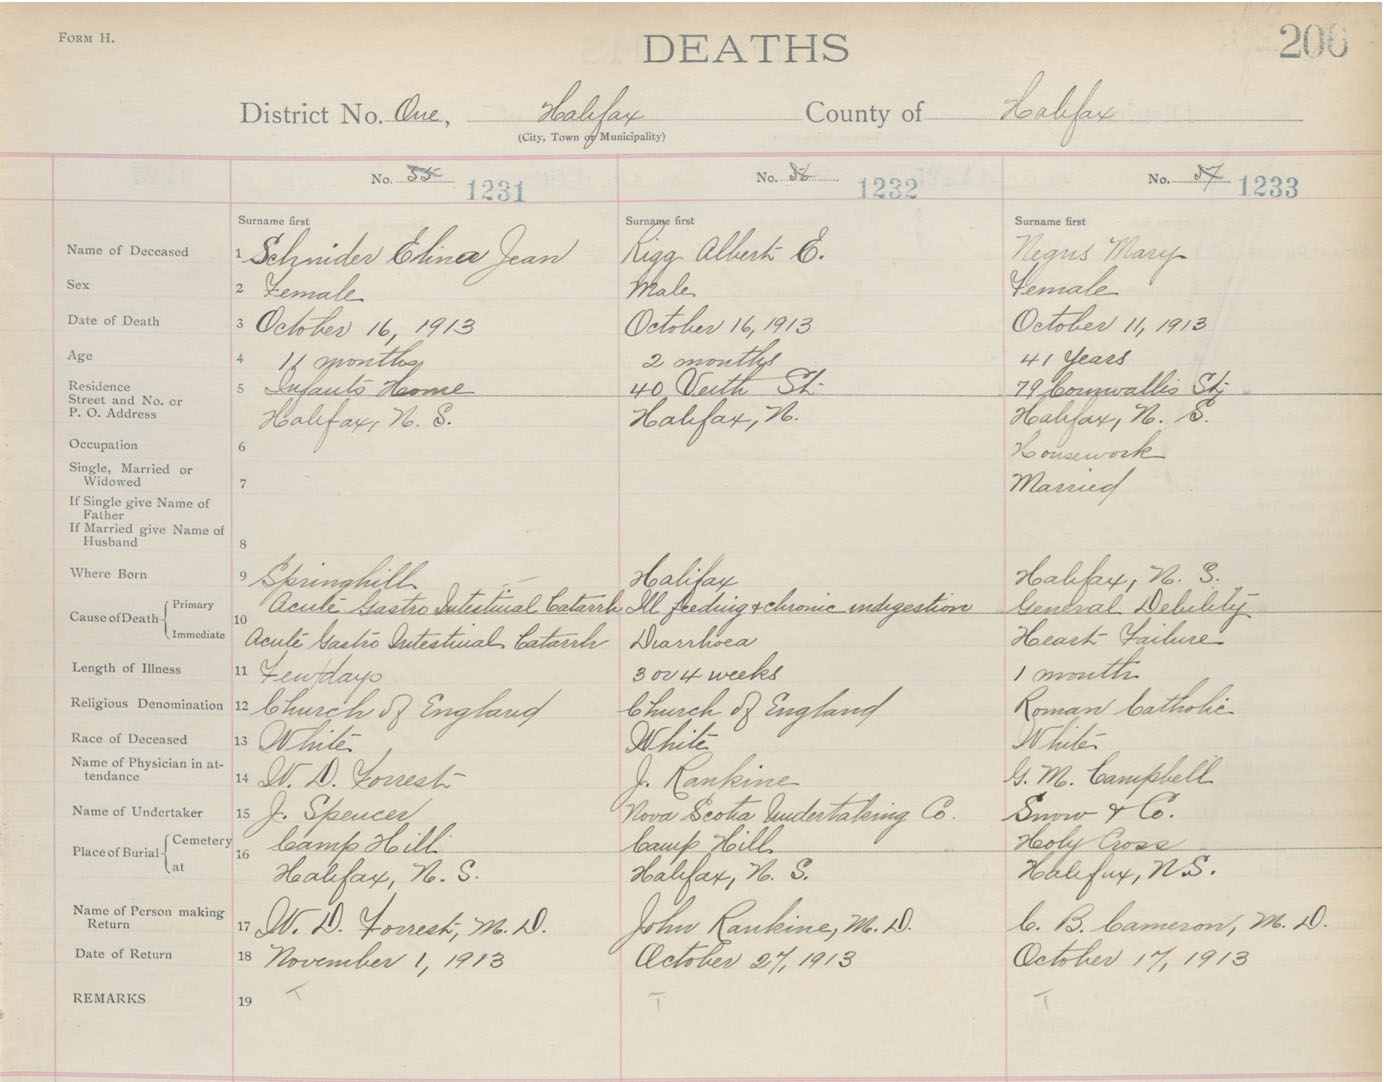 FORM H.
DEATHS
206
District No. One, Halifax County of Halifax
(City, Town or Municipality)
No. 55 1231 No. 56 1232 No. 57 1233
Surname first Surname first Surname first
Name of Deceased 1 Schnider Elina Jean Rigg Albert E. Negus Mary
Sex 2 Female Male Female
Date of Death 3 October 16, 1913 October 16, 1913 October 11, 1913
Age 4 11 months 2 months 41 Years
Residence 5 Infants Home 40 Veith St. 79 Cornwallis St;
Street and No. or
P. O. Address Halifax, N. S. Halifax, N. Halifax, N. S.
Occupation 6 Housework
Single, Married or
Widowed 7 Married
If Single give Name of
Father
If Married give Name of
Husband 8
Where Born 9 Springhill Halifax Halifax, N. S.
Cause of Death Primary 10 Acute Gastro Intestinal Catarrh Ill feeding & chronic indigestion General Debility
Immediate Acute Gastro Intestinal Catarrh Diarrhoea Heart Failure
Length of Illness 11 Few days 3 or 4 weeks 1 month
Religious Denomination 12 Church of England Church of England Roman Catholic
Race of Deceased 13 White White White
Name of Physician in at-
tendance 14 W. D. Forrest J. Rankine G. M. Campbell
Name of Undertaker 15 J. Spencer Nova Scotia Undertaking Co. Snow & Co.
Place of Burial Cemetery 16 Camp Hill Camp Hill Holy Cross
at Halifax, N. S. Halifax, N. S. Halifax, N.S.
Name of Person making
Return 17 W. D. Forrest, M. D. John Rankine, M. D. C. B. Cameron, M. D.
Date of Return 18 November 1, 1913 October 27, 1913 October 17, 1913
REMARKS 19 T T T